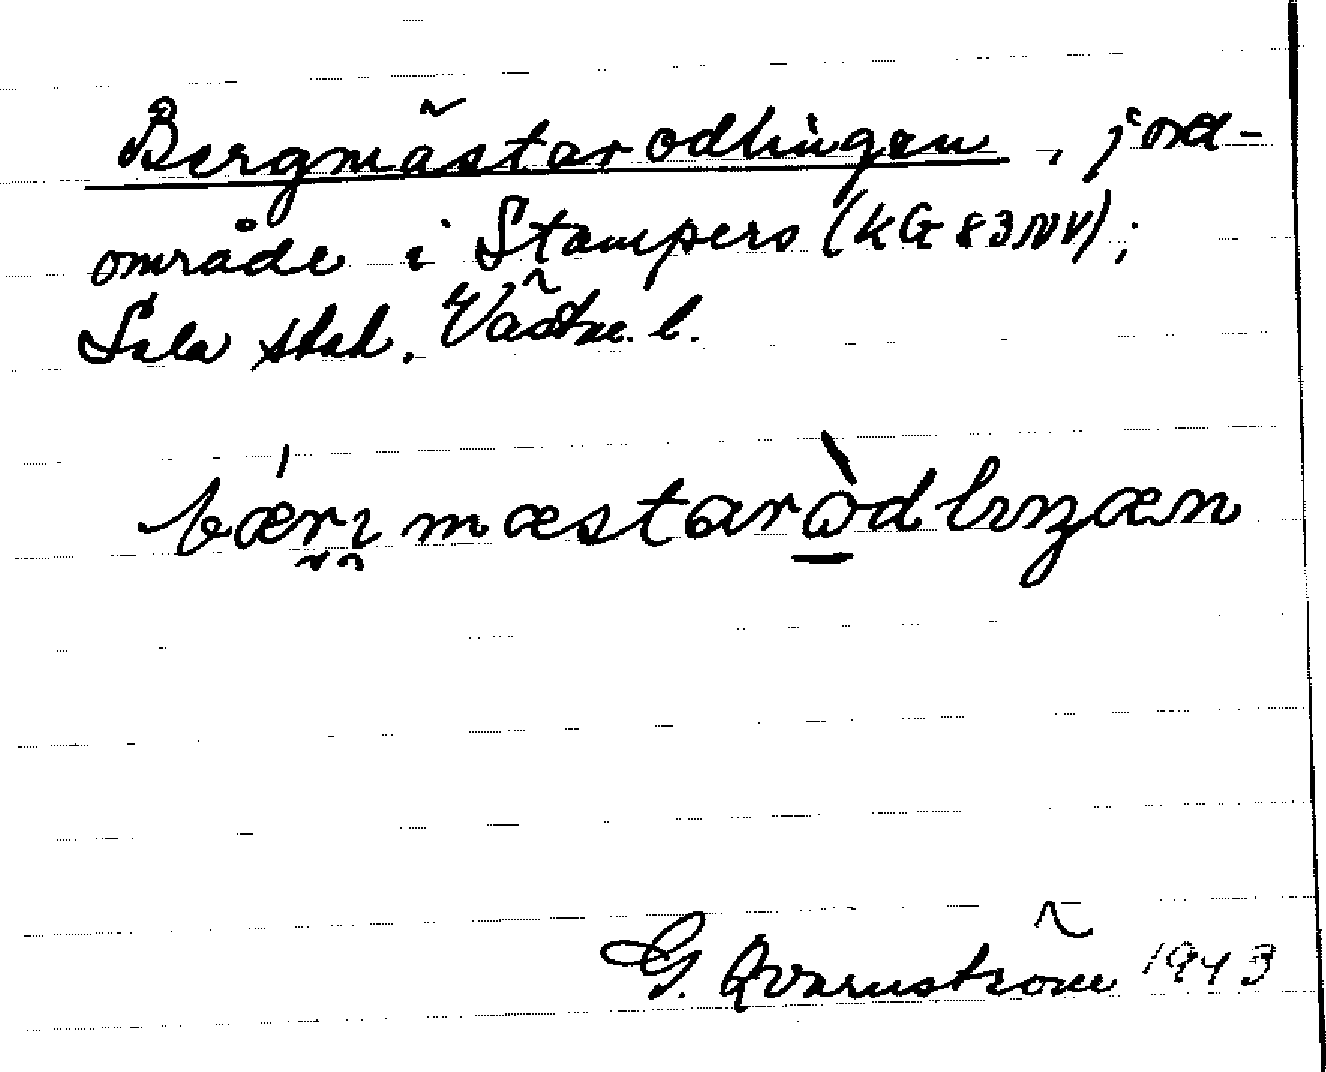 Bergmästarodlingen, jord-
område i Stampers (KG 83 NV);
Sala stad. Västm. l.
bær̥ı̯mæstaròdlıŋæn
G. Qvarnström 1943